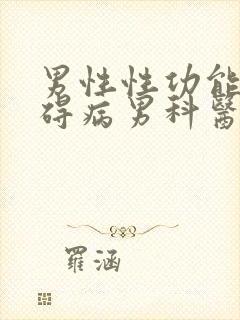 男性性功能
碍病男科醫
羅涵